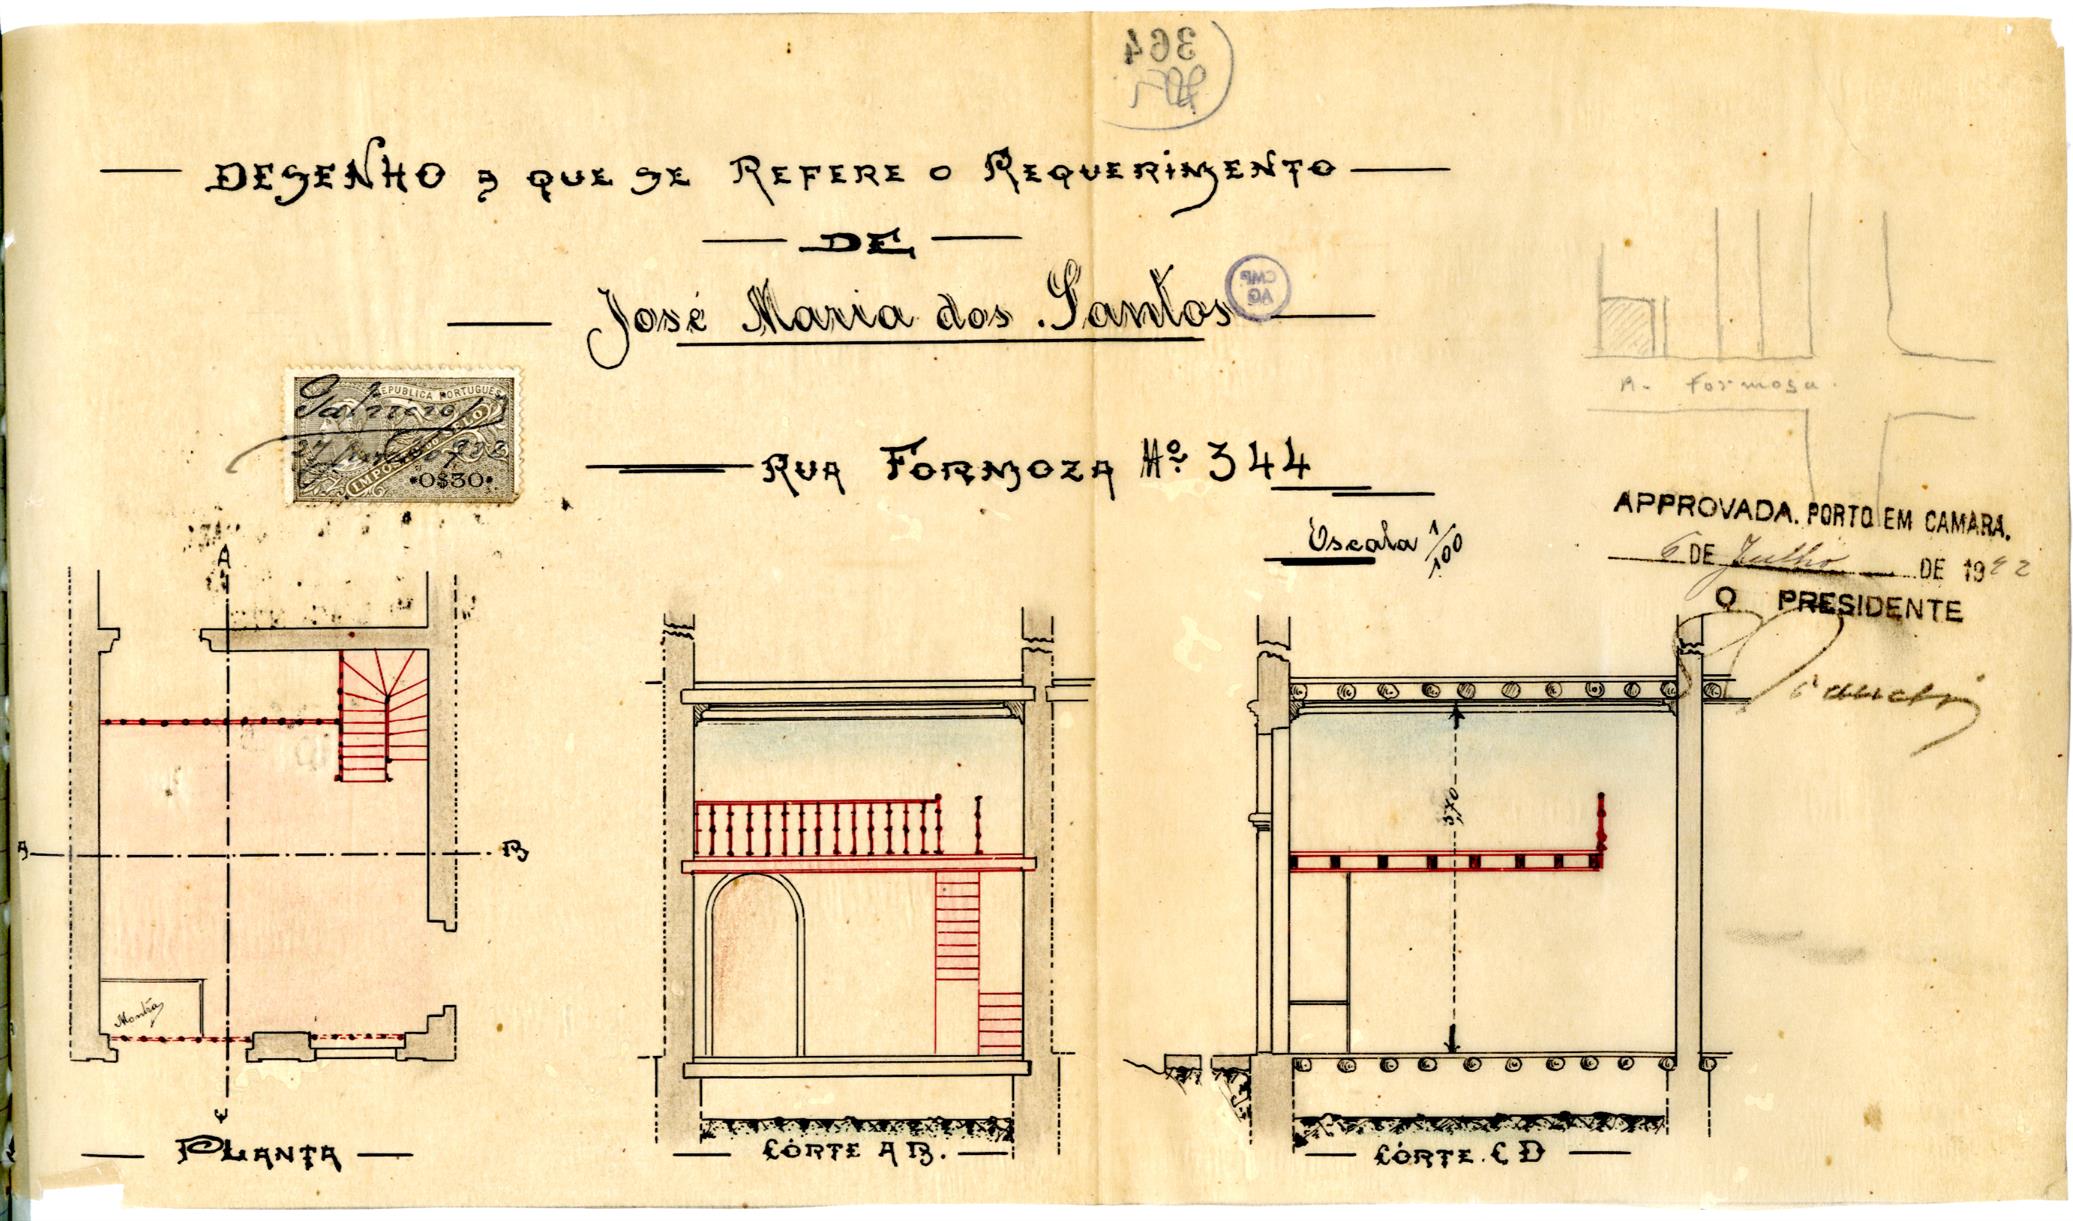 364
DESENHO a QUE SE REFERE O REQUERIMENTO
DE
José Maria dos Santos
CMP
AG
REPUBLICA PORTUGUESA
IMPOSTO DO SELO
•0$30•
R. Formosa.
RUA FORMOZA Nº. 344
Escala 1/100
APPROVADA. PORTO EM CAMARA.
6 DE Julho DE 1922
O PRESIDENTE
A
A
B
Montra
C
PLANTA
CÓRTE A B.
3,70
CÓRTE. C D